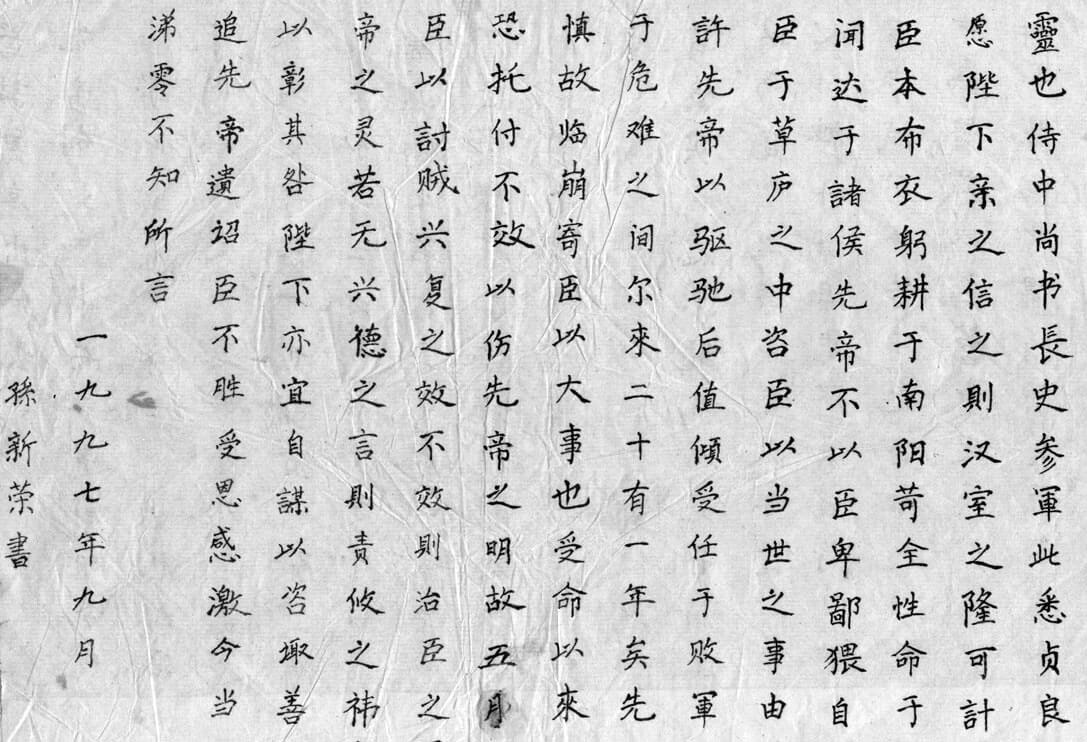 靈也侍中尚书長史参軍此悉贞良
愿陛下亲之信之則汉室之隆可計
臣本布衣躬耕于南阳苟全性命于
闻达于諸侯先帝不以臣卑鄙猥自
臣于草庐之中咨臣以当世之事由
許先帝以驱驰后值倾受任于败軍
于危难之间尔來二十有一年矣先
慎故临崩寄臣以大事也受命以來
恐托付不效以伤先帝之明故五月
臣以討贼兴复之效不效則治臣之
帝之灵若无兴德之言則責攸之祎
以彰其咎陛下亦宜自謀以咨諏善
追先帝遺詔臣不胜受恩感激今当
涕零不知所言
一九九七年九月
孫新荣書